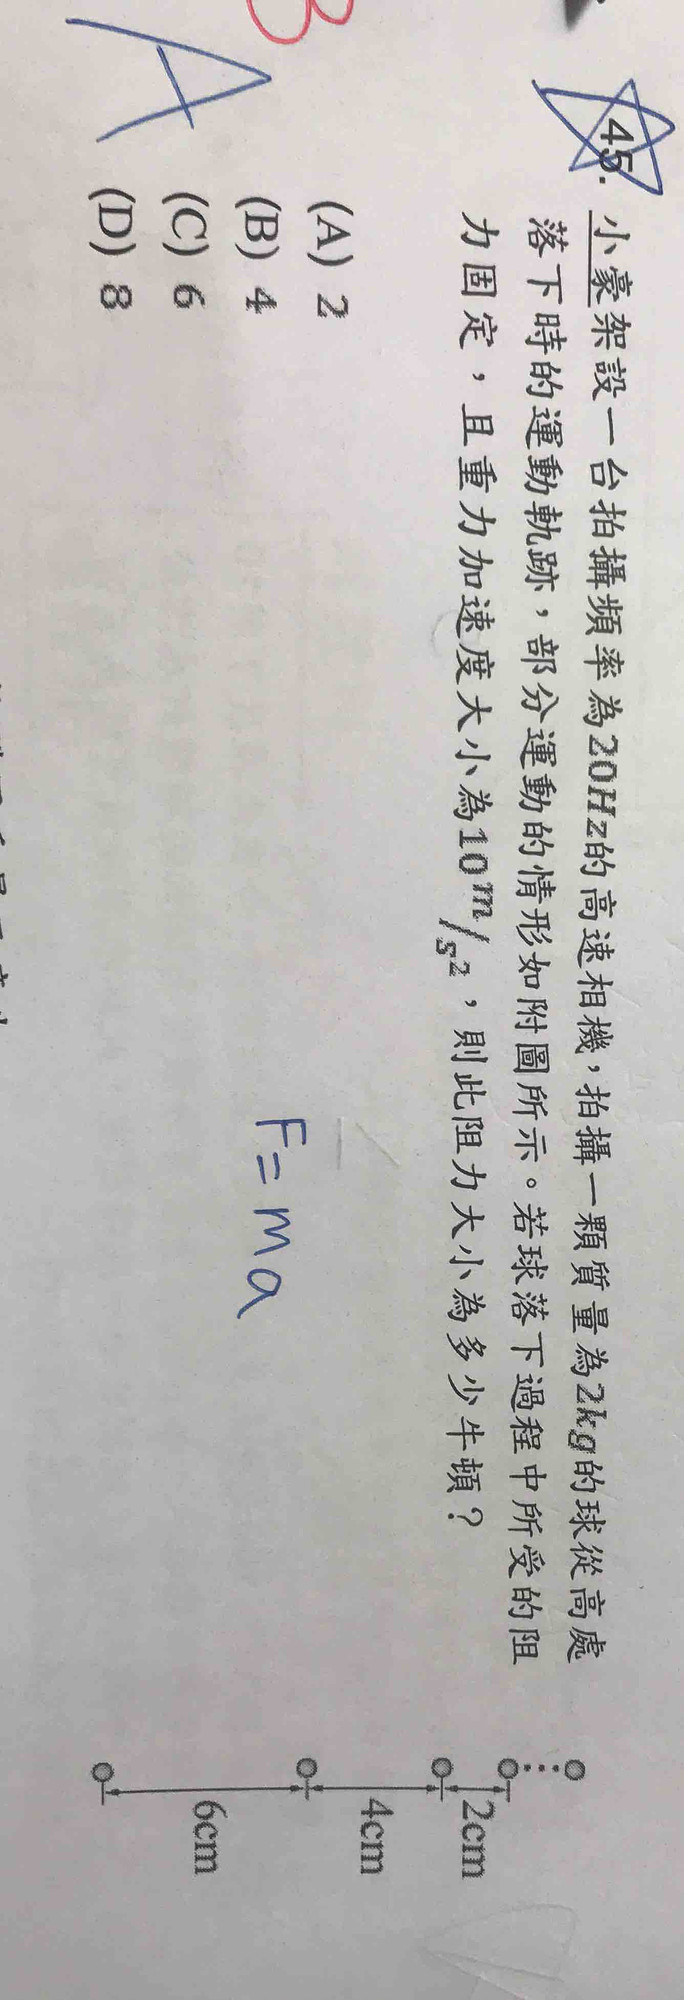 B
A
45. 小豪架設一台拍攝頻率為20Hz的高速相機，拍攝一顆質量為2kg的球從高處
落下時的運動軌跡，部分運動的情形如附圖所示。若球落下過程中所受的阻
力固定，且重力加速度大小為10 m/s²，則此阻力大小為多少牛頓？
(A) 2
(B) 4
(C) 6
(D) 8
F=ma
2cm
4cm
6cm